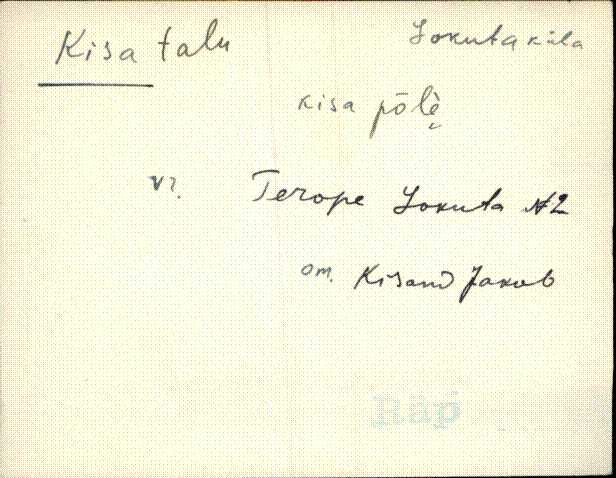 Kisa talu Jokuta küla
kisa põlè
vr. Terope Jokuta №2
om. Kisand Jakob
Räp